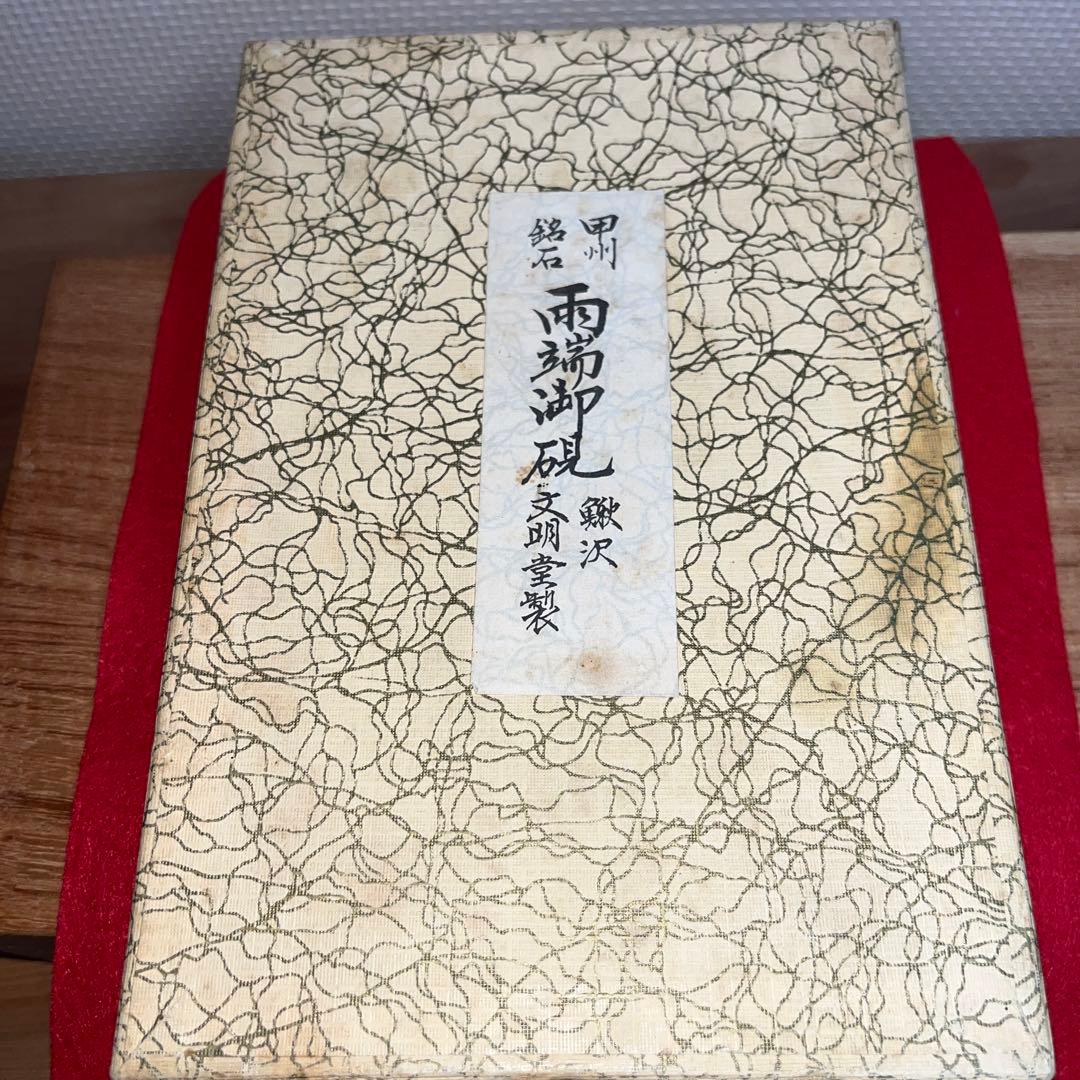 甲州
銘石
雨端御硯
鰍沢
文明堂製